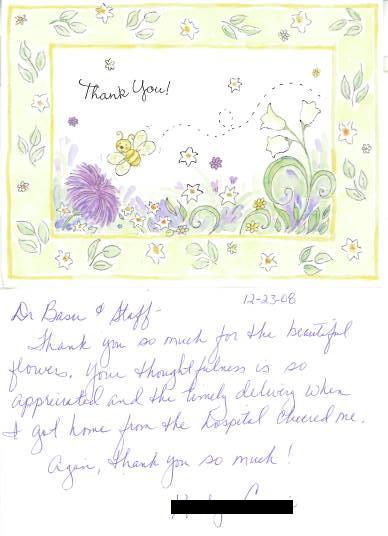 Thank You!
12-23-08
Dr Basu & Staff-
Thank you so much for the beautiful
flowers. Your thoughtfulness is so
appriciated and the timely delivery when
I got home from the hospital cheered me.
Again, thank you so much!